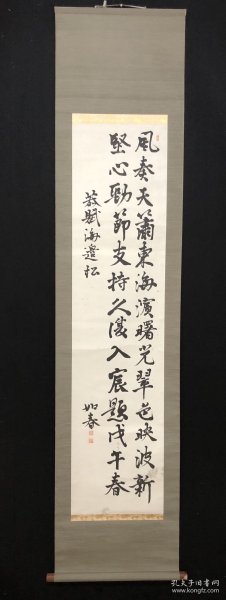 風奏天簫東海濱曙光翠色映波新
堅心勁節支持久滿入宸題戊午春
敬賦海邊松
如春
孔夫子旧书网
www.kongfz.com